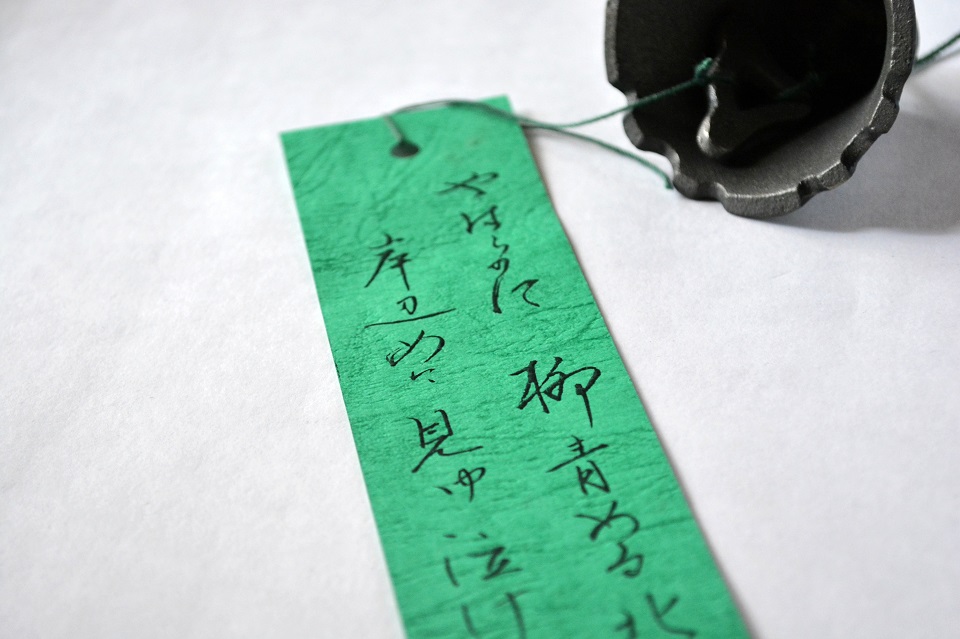 やはらかに 柳青める北
岸辺めに 見ゆ 泣け